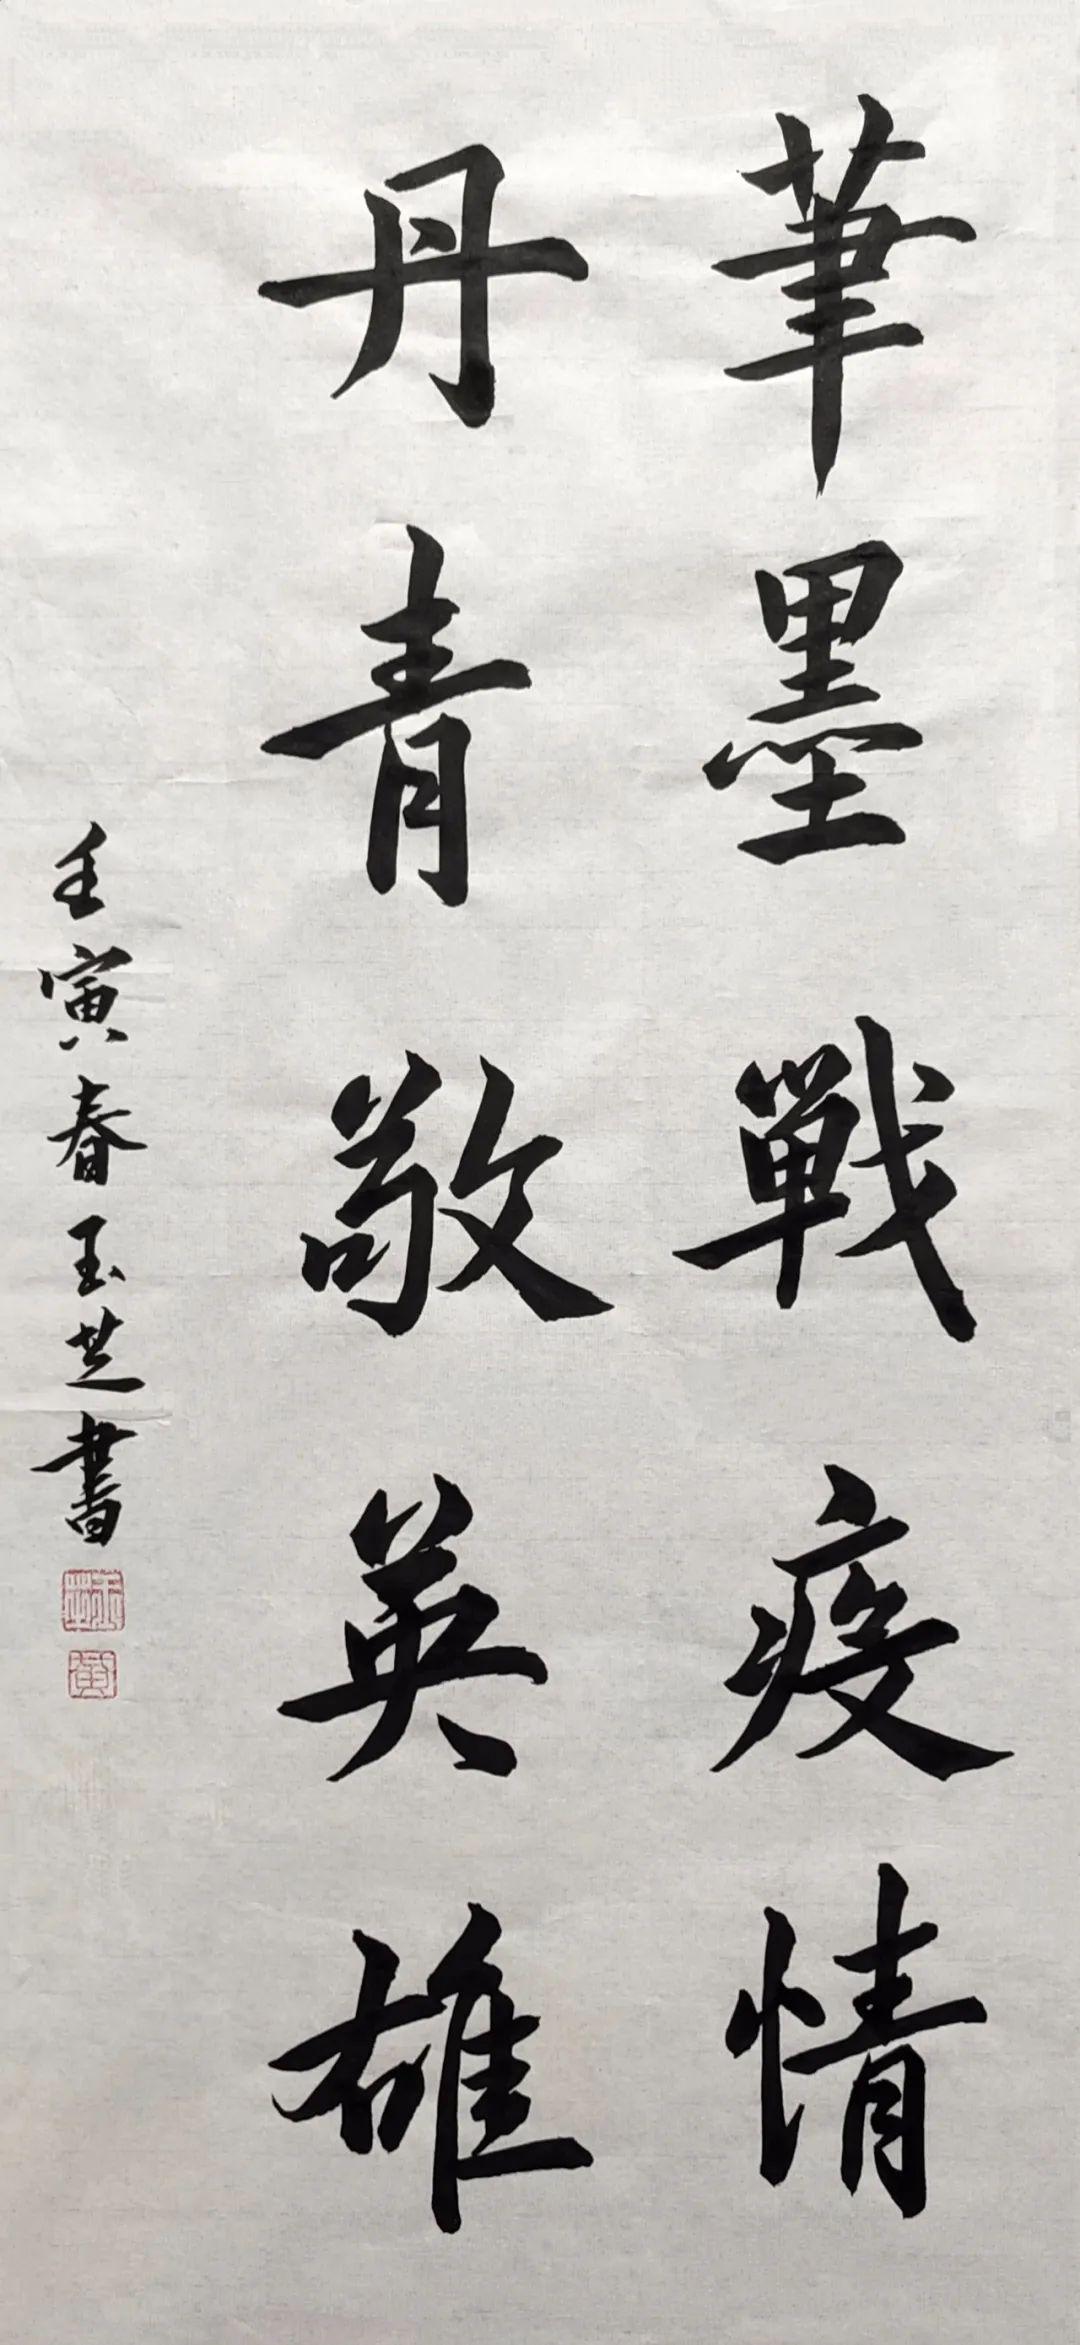 筆墨戰疫情
丹青敬英雄
壬寅春玉芝書